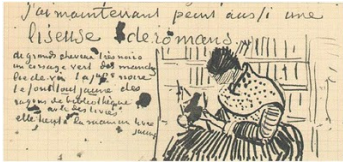 J'ai maintenant peint aussi une
liseuse de romans
de grands cheveux très noirs
un corsage vert des manches
lie de vin la jupe noire
le fond tout jaune des
rayons de bibliothèque
avec des livres
elle tient la main un livre
jaune